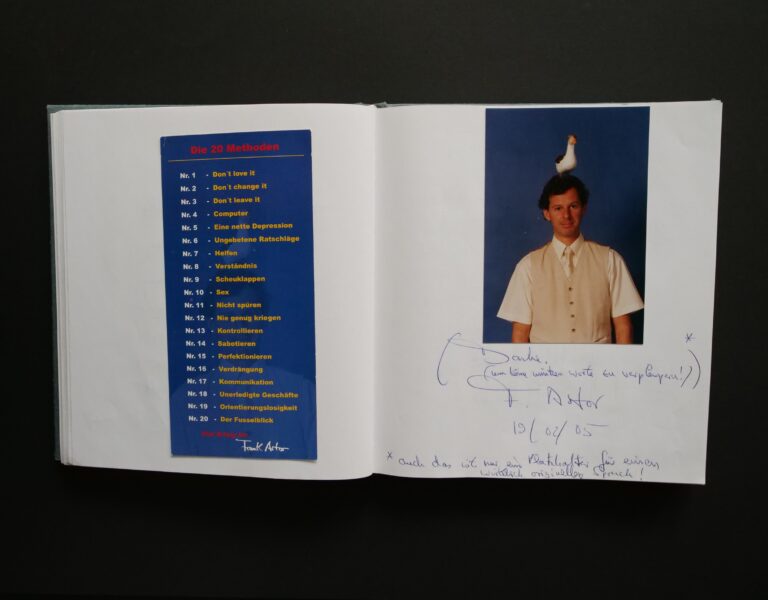 Die 20 Methoden
Nr. 1 - Don´t love it
Nr. 2 - Don´t change it
Nr. 3 - Don´t leave it
Nr. 4 - Computer
Nr. 5 - Eine nette Depression
Nr. 6 - Ungebetene Ratschläge
Nr. 7 - Helfen
Nr. 8 - Verständnis
Nr. 9 - Scheuklappen
Nr. 10 - Sex
Nr. 11 - Nicht spüren
Nr. 12 - Nie genug kriegen
Nr. 13 - Kontrollieren
Nr. 14 - Sabotieren
Nr. 15 - Perfektionieren
Nr. 16 - Verdrängung
Nr. 17 - Kommunikation
Nr. 18 - Unerledigte Geschäfte
Nr. 19 - Orientierungslosigkeit
Nr. 20 - Der Fusselblick
Frank Astor
*
( Danke,
(um keine weiteren Worte zu verplempern!))
F. Astor
19/02/05
* auch das ist nur ein Platzhalter für einen
wirklich originellen Spruch!